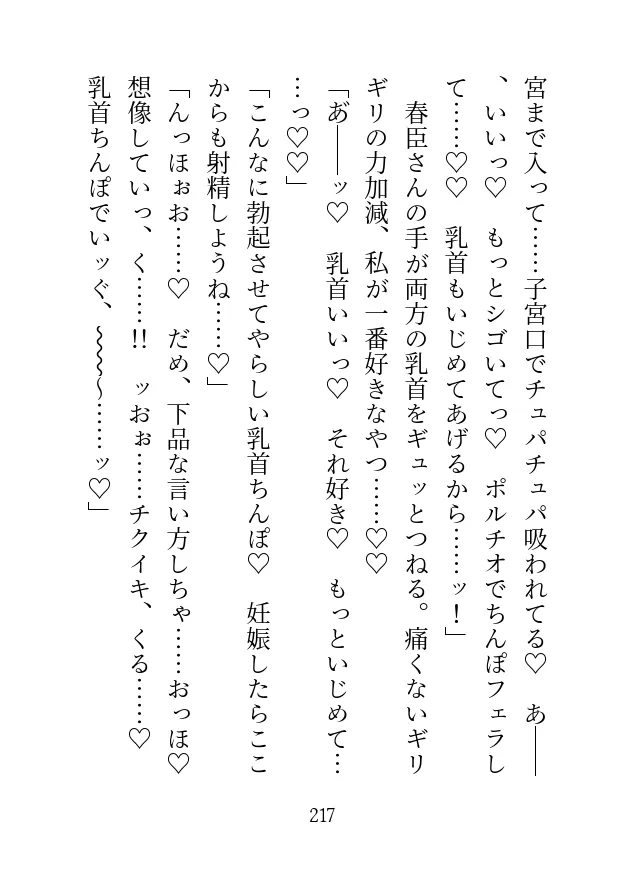 宮まで入って……子宮口でチュパチュパ吸われてる♡　あ――
、いいっ♡　もっとシゴいてっ♡　ポルチオでちんぽフェラし
て……♡♡　乳首もいじめてあげるから……ッ！」
　春臣さんの手が両方の乳首をギュッとつねる。痛くないギリ
ギリの力加減、私が一番好きなやつ……♡♡
「あ゙――ッ♡　乳首いいっ♡　それ好き♡　もっといじめて…
…っ♡♡」
「こんなに勃起させてやらしい乳首ちんぽ♡　妊娠したらここ
からも射精しようね……♡」
「んっほぉお……♡　だめ、下品な言い方しちゃ……おっほ♡
想像していっ、く……!!　ッおぉ……チクイキ、くる……♡
乳首ちんぽでいッぐ、～～～……ッ♡」
217